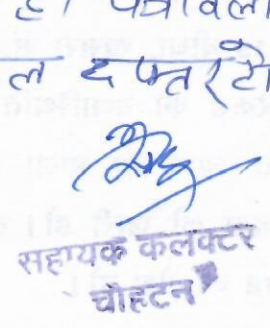 है। पत्रावली
ल दफ्तर हो
सहायक कलक्टर
चौहटन